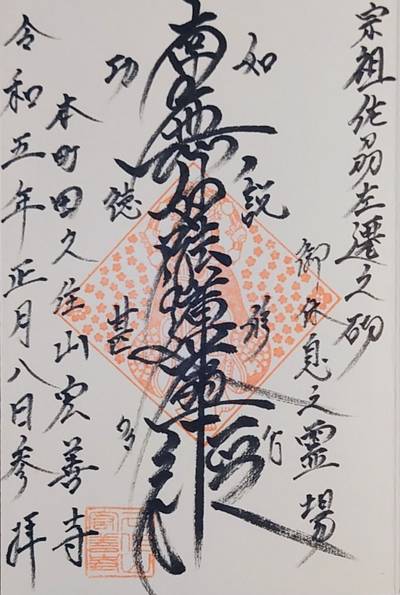 宗祖佐刕左遷之砌
御休息之霊場
如説修行
南無妙法蓮華経
功徳甚多
本町田久住山宏善寺
令和五年正月八日参拝